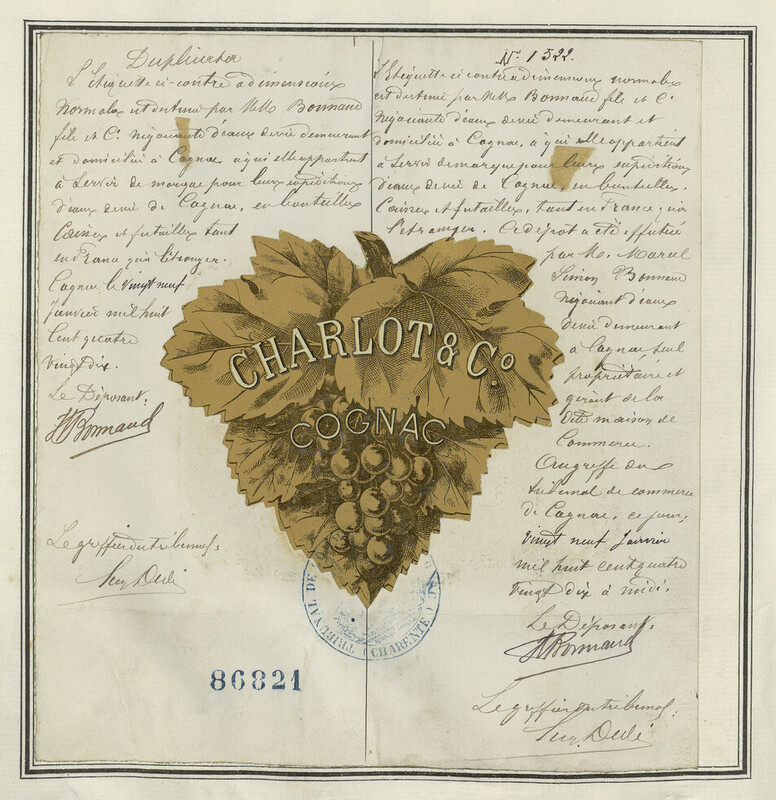 Duplicata
L'étiquette ci-contre a dimensions
normales est destinée par MM. Bonnaud
fils et Cie Négociants d'eaux de vie demeurant
et domiciliés à Cognac, à qui elle appartient
à servir de marque pour leurs expéditions
d'eaux de vie de Cognac, en bouteilles
Caisses et futailles tant
en France qu'à l'étranger.
Cognac le vingt neuf
Janvier mil huit
Cent quatre
vingt dix.
Le Déposant:
Bonnaud
Le greffier du tribunal:
No 1322.
L'Etiquette ci contre a dimensions normales
est destinée par MM. Bonnaud fils et Cie
Négociants d'eaux de vie demeurant et
domiciliés à Cognac, à qui elle appartient
à servir de marque pour leurs expéditions
d'eaux de vie de Cognac, en bouteilles.
Caisses et futailles, tant en France, qu'à
l'étranger. Ce dépôt a été effectué
par M. Marcel
Simon Bonnaud
Négociant d'eaux
de vie demeurant
à Cognac seul
propriétaire et
gérant de la
dite maison de
Commerce.
Au greffe du
tribunal de commerce
de Cognac, ce jour,
vingt neuf Janvier
mil huit cent quatre
vingt dix à midi.
Le Déposant:
Bonnaud
Le greffier du tribunal:
CHARLOT & Co
COGNAC
TRIBUNAL DE
(CHARENTE)
86821